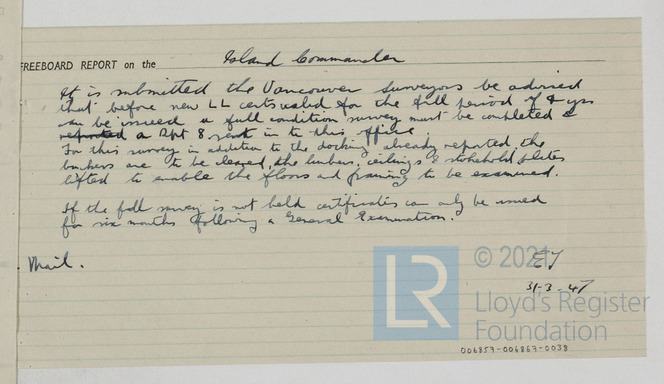 FREEBOARD REPORT on the Island Commander
It is submitted the Vancouver Surveyors be advised
that before new LL certs valid for the full period of 4 yrs
can be issued a full condition survey must be completed &
reported a Rpt 8 sent in to this office.
For this survey in addition to the docking already reported, the
bunkers are to be cleared, the limbers, ceilings & stokehold plates
lifted to enable the floors and framing to be examined.
If the full survey is not held certificates can only be issued
for six months following a General Examination.
Mail.
© 2021
31-3-47
LR
Lloyd's Register
Foundation
006857-006867-0038